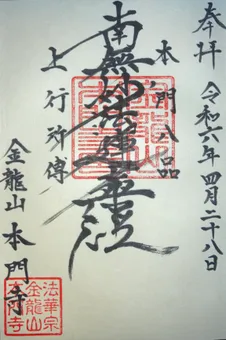 奉拝 令和六年四月二十八日
本門八品
南無妙法蓮華経
上行所傳
金龍山 本門寺
法華宗
金龍山
本門寺